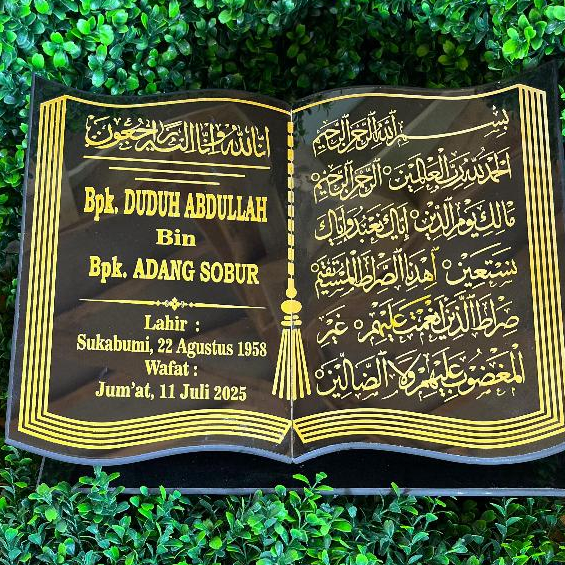 انا لله وانا اليه راجعون
Bpk. DUDUH ABDULLAH
Bin
Bpk. ADANG SOBUR
Lahir :
Sukabumi, 22 Agustus 1958
Wafat :
Jum'at, 11 Juli 2025
بسم الله الرحمن الرحيم
الحمد لله رب العالمين الرحمن الرحيم
مالك يوم الدين اياك نعبد واياك
نستعين اهدنا الصراط المستقيم
صراط الذين انعمت عليهم غير
المغضوب عليهم ولا الضالين